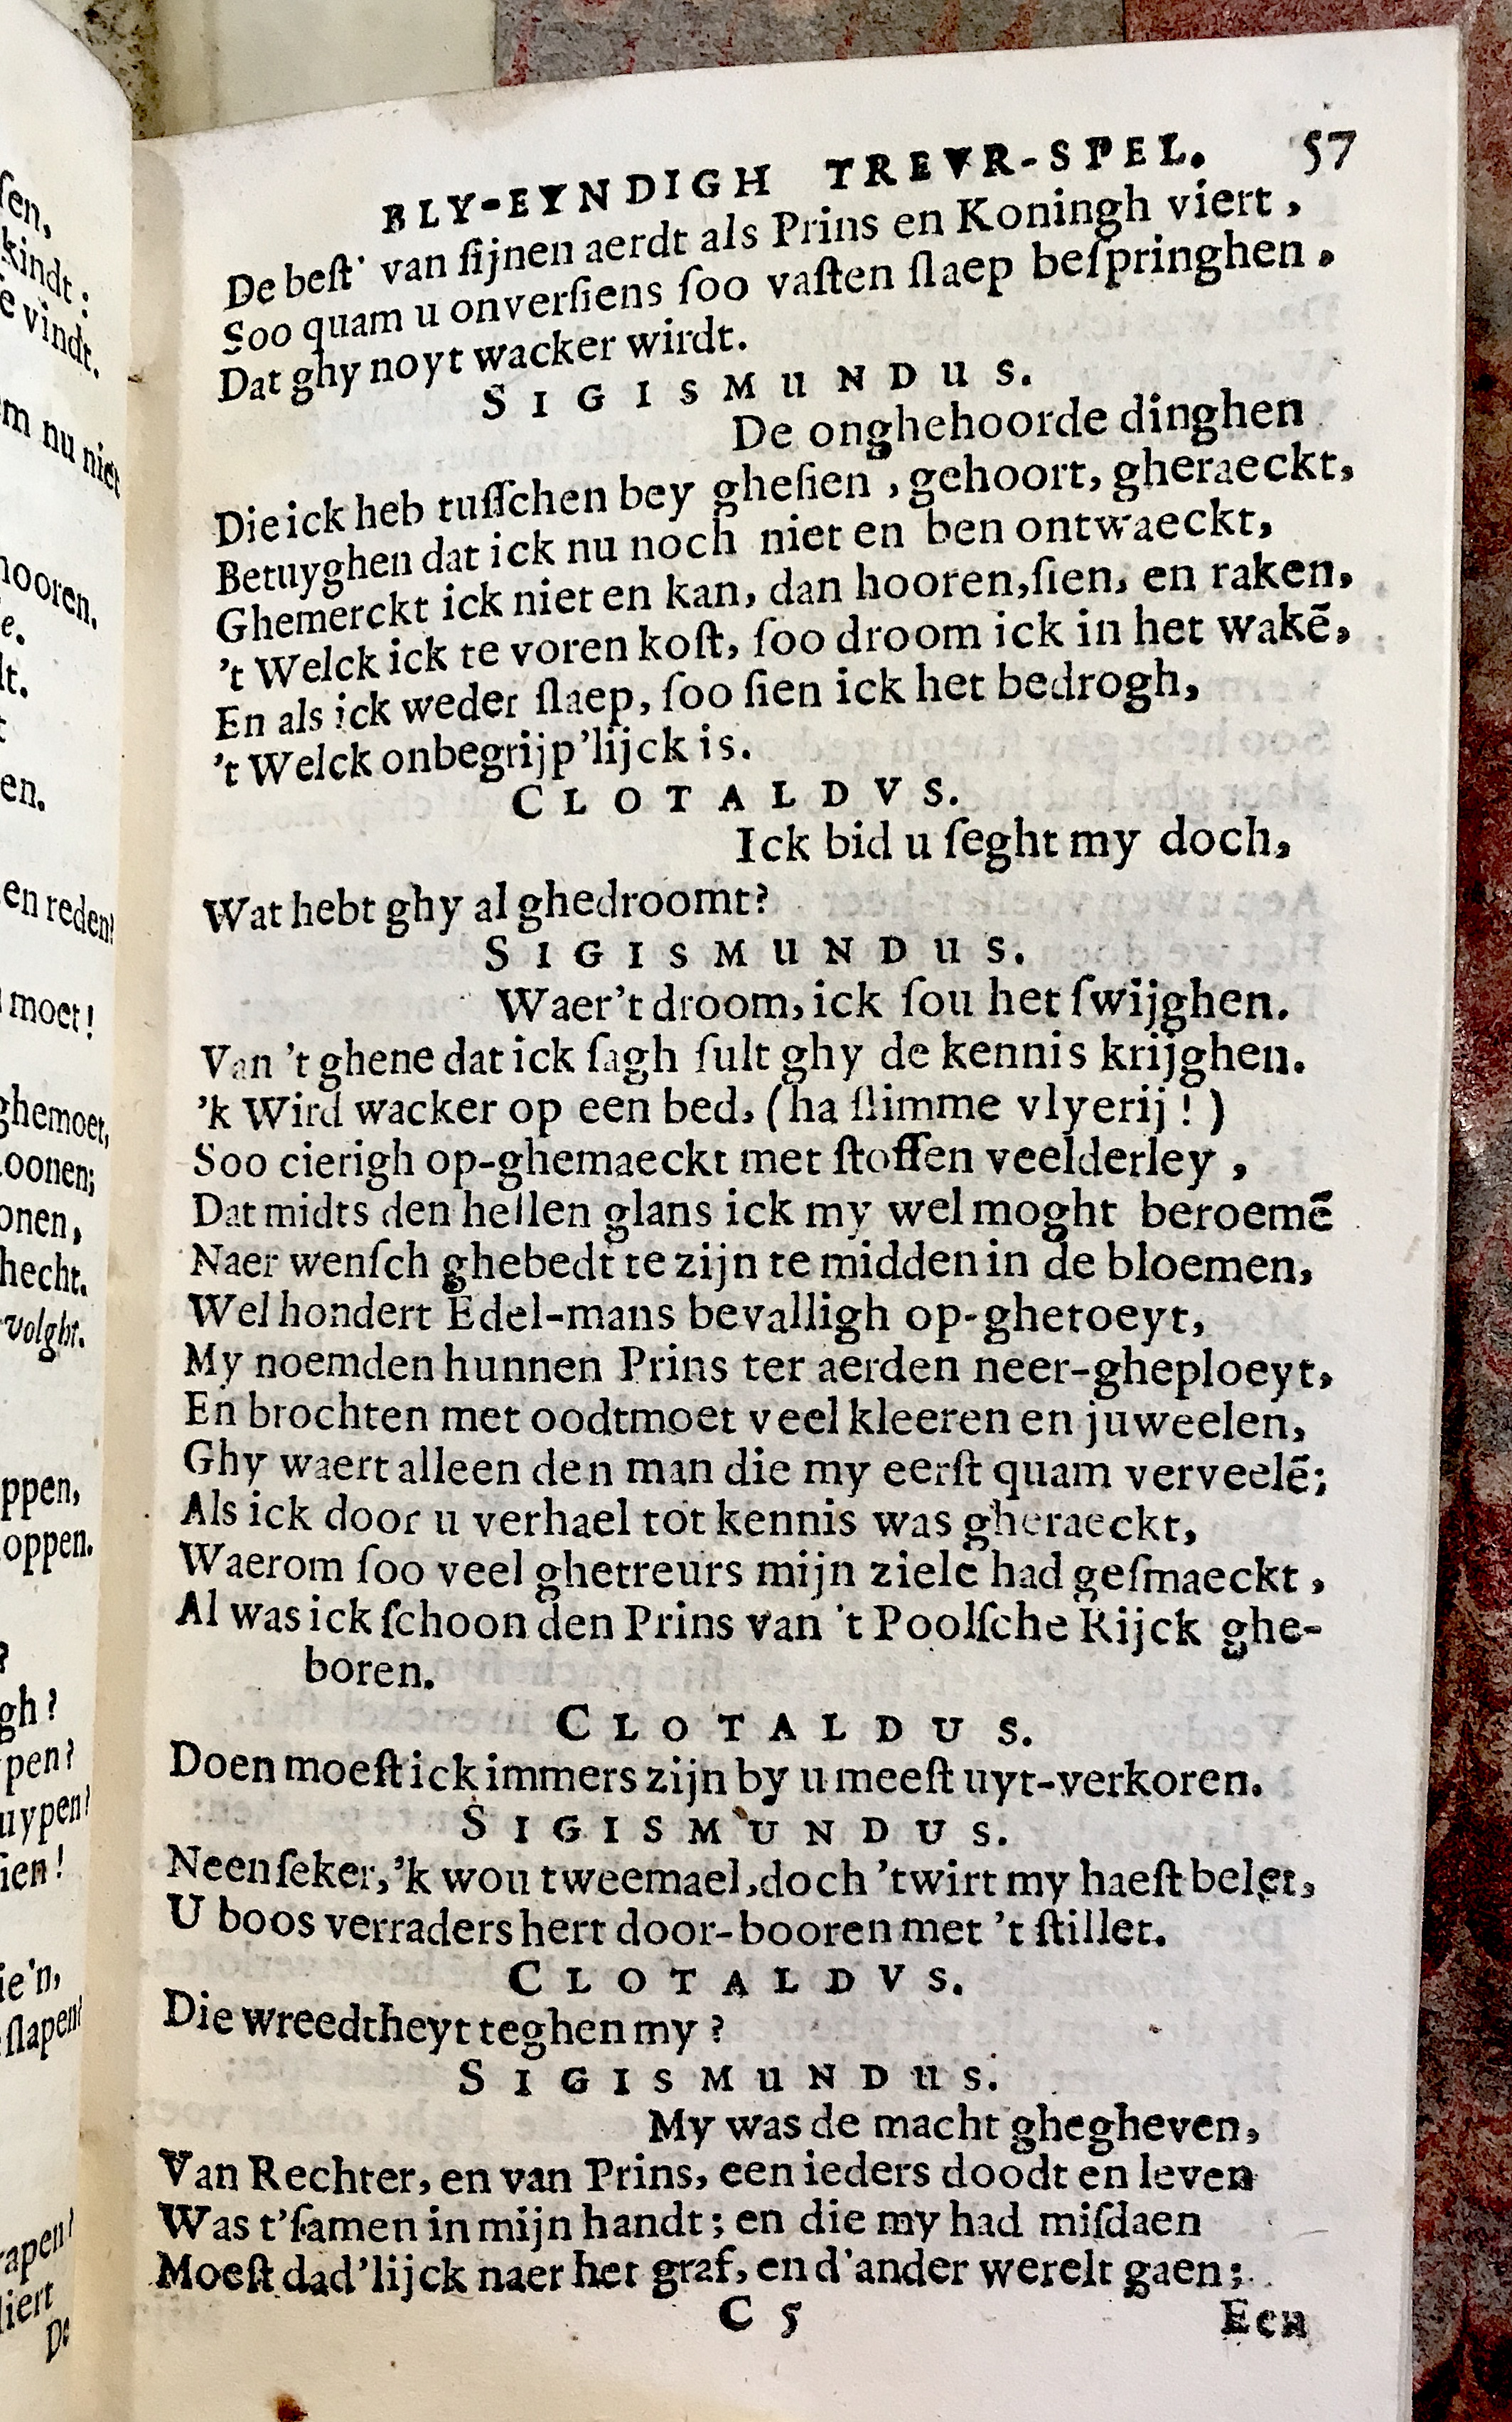 ſen,
kindt:
e vindt.
m nu niet
hooren.
e.
lt.
t
en.
en reden!
moet!
ghemoet,
oonen;
onen,
hecht.
volght.
ppen,
oppen.
?
gh?
pen?
uypen?
ien!
ie'n,
ſlapen!
rapen?
liert
De
BLY-EYNDIGH TREVR-SPEL. 57
De beſt' van ſijnen aerdt als Prins en Koningh viert,
Soo quam u onverſiens ſoo vaſten ſlaep beſpringhen,
Dat ghy noyt wacker wirdt.
SIGISMUNDUS.
De onghehoorde dinghen
Die ick heb tuſſchen bey gheſien, gehoort, gheraeckt,
Betuyghen dat ick nu noch niet en ben ontwaeckt,
Ghemerckt ick niet en kan, dan hooren, ſien, en raken,
't Welck ick te voren koſt, ſoo droom ick in het wakē,
En als ick weder ſlaep, ſoo ſien ick het bedrogh,
't Welck onbegrijp'lijck is.
CLOTALDVS.
Ick bid u ſeght my doch,
Wat hebt ghy al ghedroomt?
SIGISMUNDUS.
Waer't droom, ick ſou het ſwijghen.
Van 't ghene dat ick ſagh ſult ghy de kennis krijghen.
'k Wird wacker op een bed, (ha ſlimme vlyerij!)
Soo cierigh op-ghemaeckt met ſtoffen veelderley,
Dat midts den hellen glans ick my wel moght beroemē
Naer wenſch ghebedt te zijn te midden in de bloemen,
Wel hondert Edel-mans bevalligh op-ghetoeyt,
My noemden hunnen Prins ter aerden neer-gheploeyt,
En brochten met oodtmoet veel kleeren en juweelen,
Ghy waert alleen den man die my eerſt quam verveelē;
Als ick door u verhael tot kennis was gheraeckt,
Waerom ſoo veel ghetreurs mijn ziele had geſmaeckt,
Al was ick ſchoon den Prins van 't Poolſche Rijck ghe-
boren.
CLOTALDUS.
Doen moeſt ick immers zijn by u meeſt uyt-verkoren.
SIGISMUNDUS.
Neen ſeker, 'k wou tweemael, doch 'twirt my haeſt belet,
U boos verraders hert door-booren met 't ſtillet.
CLOTALDVS.
Die wreedtheyt teghen my?
SIGISMUNDUS.
My was de macht ghegheven,
Van Rechter, en van Prins, een ieders doodt en leven
Was t'ſamen in mijn handt; en die my had miſdaen
Moeſt dad'lijck naer het graf, en d'ander werelt gaen;
C 5 Een